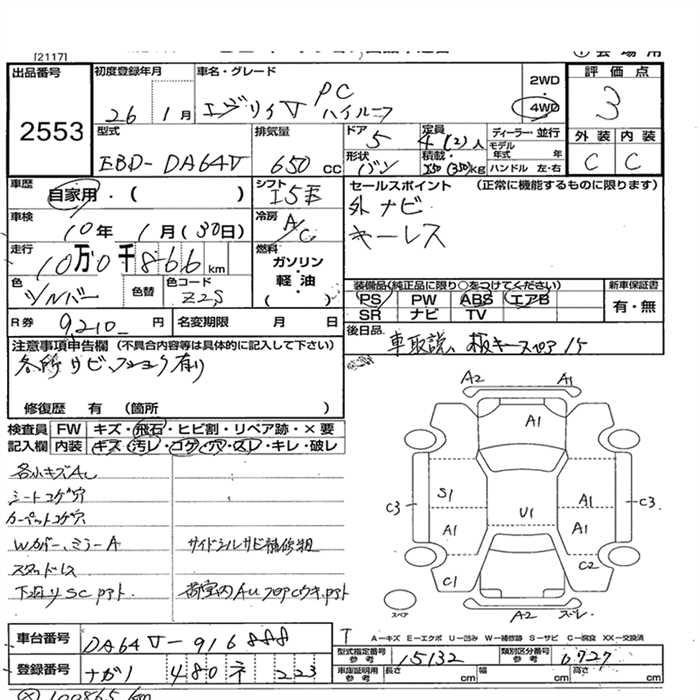 [2117]
出品番号 2553
初度登録年月 26 1月
車名・グレード エブリイV PC ハイルーフ
2WD
4WD
評価点 3
外装 C
内装 C
型式 EBD-DA64V
排気量 650 cc
ドア 5
形状 バン
定員 4(2)人
積載 350(350)kg
ディーラー・並行
モデル年式 年
ハンドル 左・右
車歴 自家用・( )
シフト I5F
車検 10年 1月(30日)
冷房 A/C
走行 10万0千866km
燃料 ガソリン・軽油 ( )
色 シルバー
色替
色コード Z2S
R券 9,210 円
名変期限 月 日
セールスポイント (正常に機能するものに限ります)
外ナビ
キーレス
装備品(純正品に限り○をつけてください)
PS PW ABS エアB
SR ナビ TV
新車保証書 有・無
後日品 車取説、
注意事項申告欄 (不具合内容等は具体的に記入して下さい)
各所サビ、
有り
修復歴 有 (箇所 )
検査員記入欄
FW キズ・飛石・ヒビ割・リペア跡・×要
内装 キズ・汚レ・コゲ・穴・スレ・キレ・破レ
各小キズAU
シートコゲ穴
カーペットコゲ穴
Wカバー、ミラーA
サイドシルサビ補修粗
スタッドレス
下廻りSC
荷室内AU
A2 A1
A1
S1 A1
C3 C3
A1 U1 A1
C1 C2
スペア
A2 ズレ
A−キズ E−エクボ U−凹み W−補修跡 S−サビ C−腐食 XX−交換済
車台番号 DA64V-916888
登録番号 ナガノ 480 ネ 223
型式指定番号 参考 15132
類別区分番号 参考 0727
車庫証明用 参考 長さ cm 幅 cm 高さ cm
100865 km